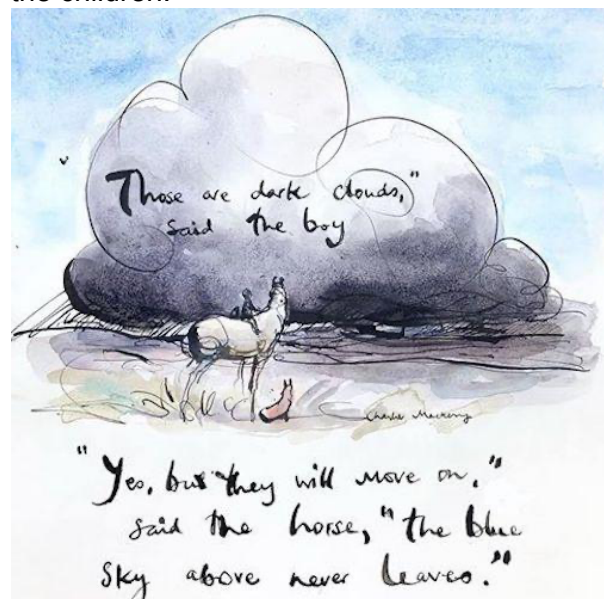 the children.
Those are dark clouds,"
said the boy
Charlie Mackesy
"Yes, but they will move on,"
said the horse, "the blue
sky above never leaves."